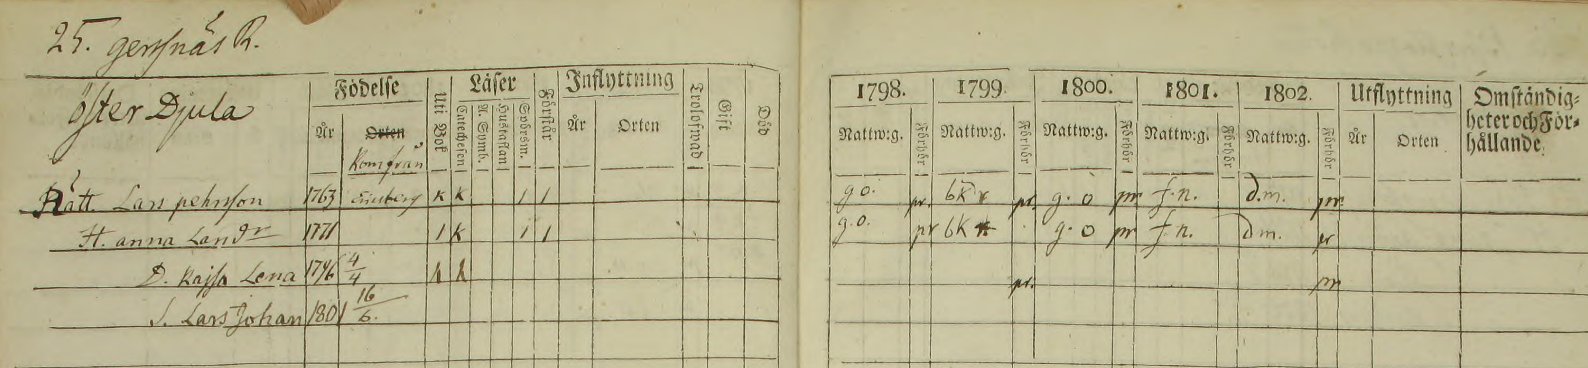 25. gersnäs R.
Öster Djula
Födelse Uti Bok Läser Förstår Inflyttning Trolofwad Gift Död 1798. 1799. 1800. 1801. 1802. Utflyttning Omständig-
heter och För-
hållande.
År Orten Catechesen A. Symb. Hustaflan Spörsm. År Orten Nattw:g. Förhör Nattw:g. Förhör Nattw:g. Förhör Nattw:g. Förhör Nattw:g. Förhör År Orten
kom från
Rätt. Lars pehrsson 1763 k k 1 1 g o. pr. 6k pr. g. o pr f. n. d.m. pr
H. anna Lar 1771 1 k 1 1 g. o. pr 6k g. o pr f. n. d m. pr
D. kajsa Lena 1796 4/4 pr. pr
S. Lars Johan 1801 16/6.